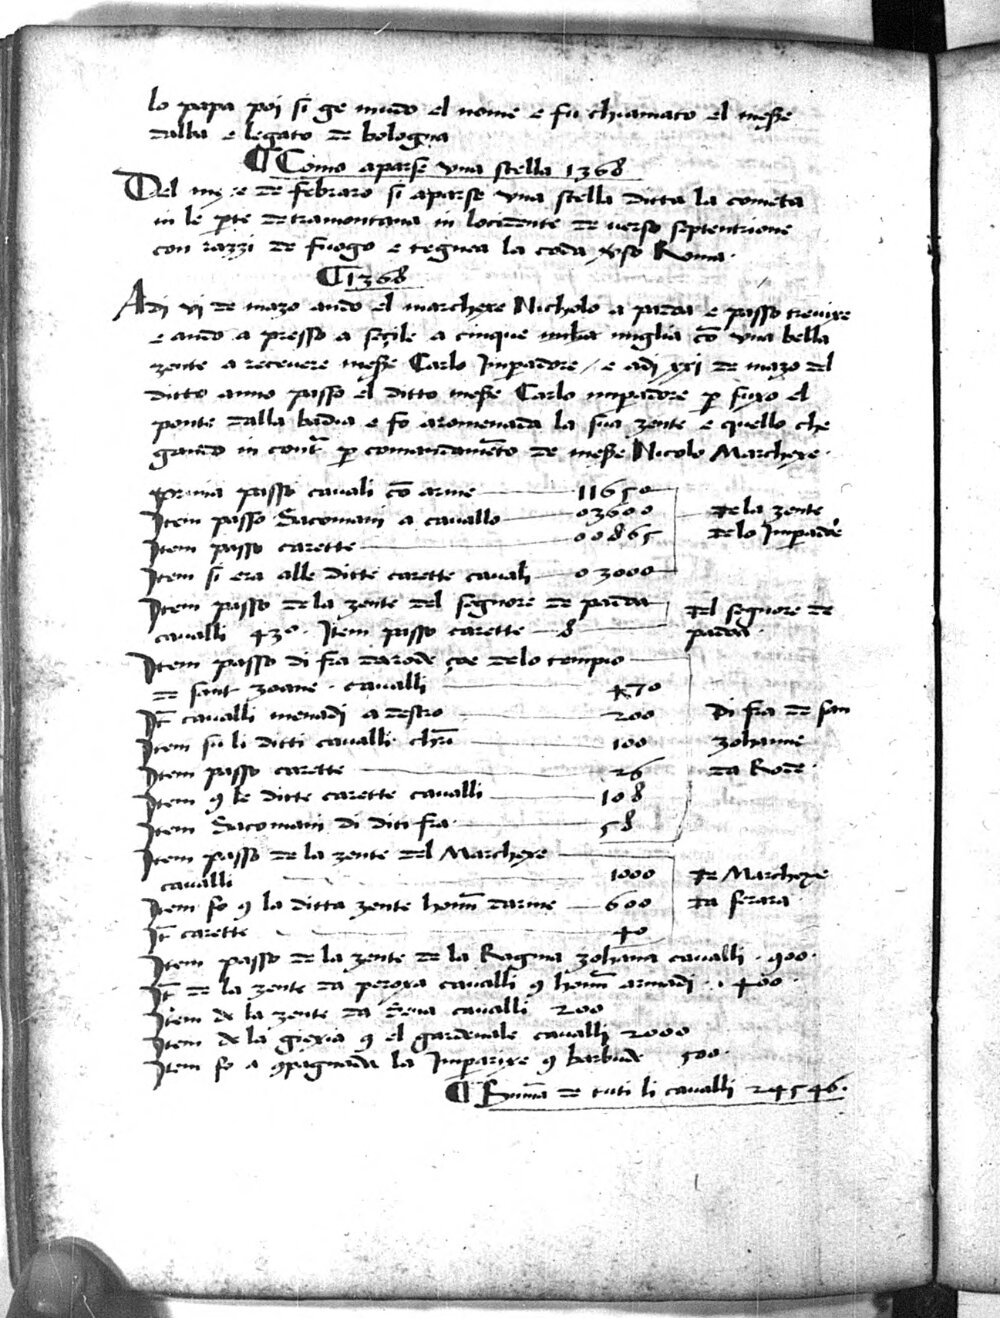 lo papa poi si ge mudo el nome e fu chiamato el messe
dalba e legato de bologna
Como aparse una stella 1368
Del de febraro si aparse una stella ditta la cometa
in le pte de tramontana in locidente de verso septentrione
con razzi de fuogo e tegnea la coda vso Roma.
1368
Adi vi de mazo ando el marchexe Nicholo a padoa e passo trevixe
e ando a presso a seçile a cinque milia miglia cō una bella
zente a recevere messe Carlo Impadore / e adi xxi de mazo del
ditto anno passo el ditto messe Carlo impadore p fuxo el
ponte dalla badia e fo aromenada la sua zente e quello che
gando in cont p comandamēto de messe Nicolo Marchexe.
Prima passo cavali cō arme 11650
Item passo Sacomani a cavallo 03600 de la zente
Item passo carette 00865 de lo Impadōe
Item si era alle ditte carette cavali 03000
Item passo de la zente del segnore de padoa del segnore de
cavalli 430. Item passo carette 8 padoa.
Item passo di fra da rode çoe de lo tempio
de sant zoane. cavalli 470
It cavalli menadi a destro 200 Di fra de san
Item su li ditti cavalli 100 zohanne
Item passo carette 26 da Rode.
Item 9 le ditte carette cavalli 108
Item Sacomani di diti fra 58
Item passo de la zente del Marchexe
cavalli 1000 De Marchexe
Item fo 9 la ditta zente homī darme 600 da ferara
It carette 40
Item passo de la zente de la Ragina zohana cavalli. 900.
It de la zente da peroxa cavalli 9 homī armadi. 400.
Item de la zente da Siena cavalli 200
Item de la giexia 9 el gardenale cavalli 2000
Item fo a 9pagnada la Imparixe 9 barbude 500.
Suma de tuti li cavalli 24546.